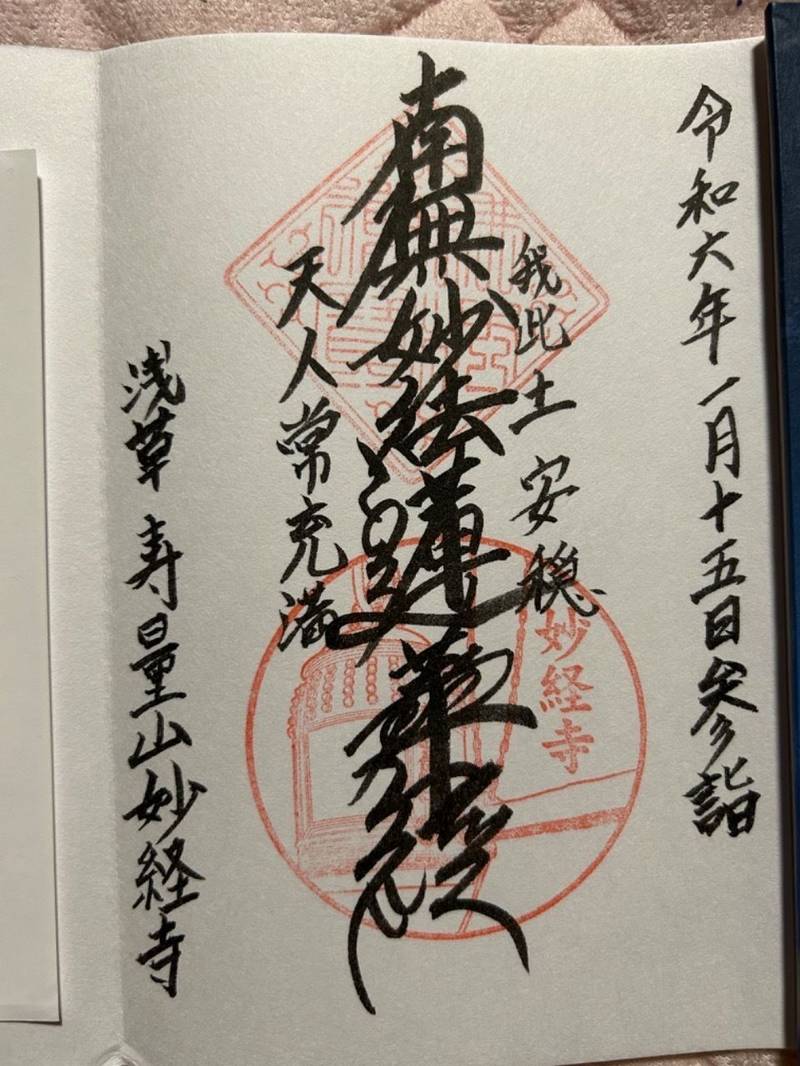 令和六年一月十五日参詣
我此土安穏
南無妙法蓮華経
天人常充満
浅草寿量山妙経寺
妙経寺